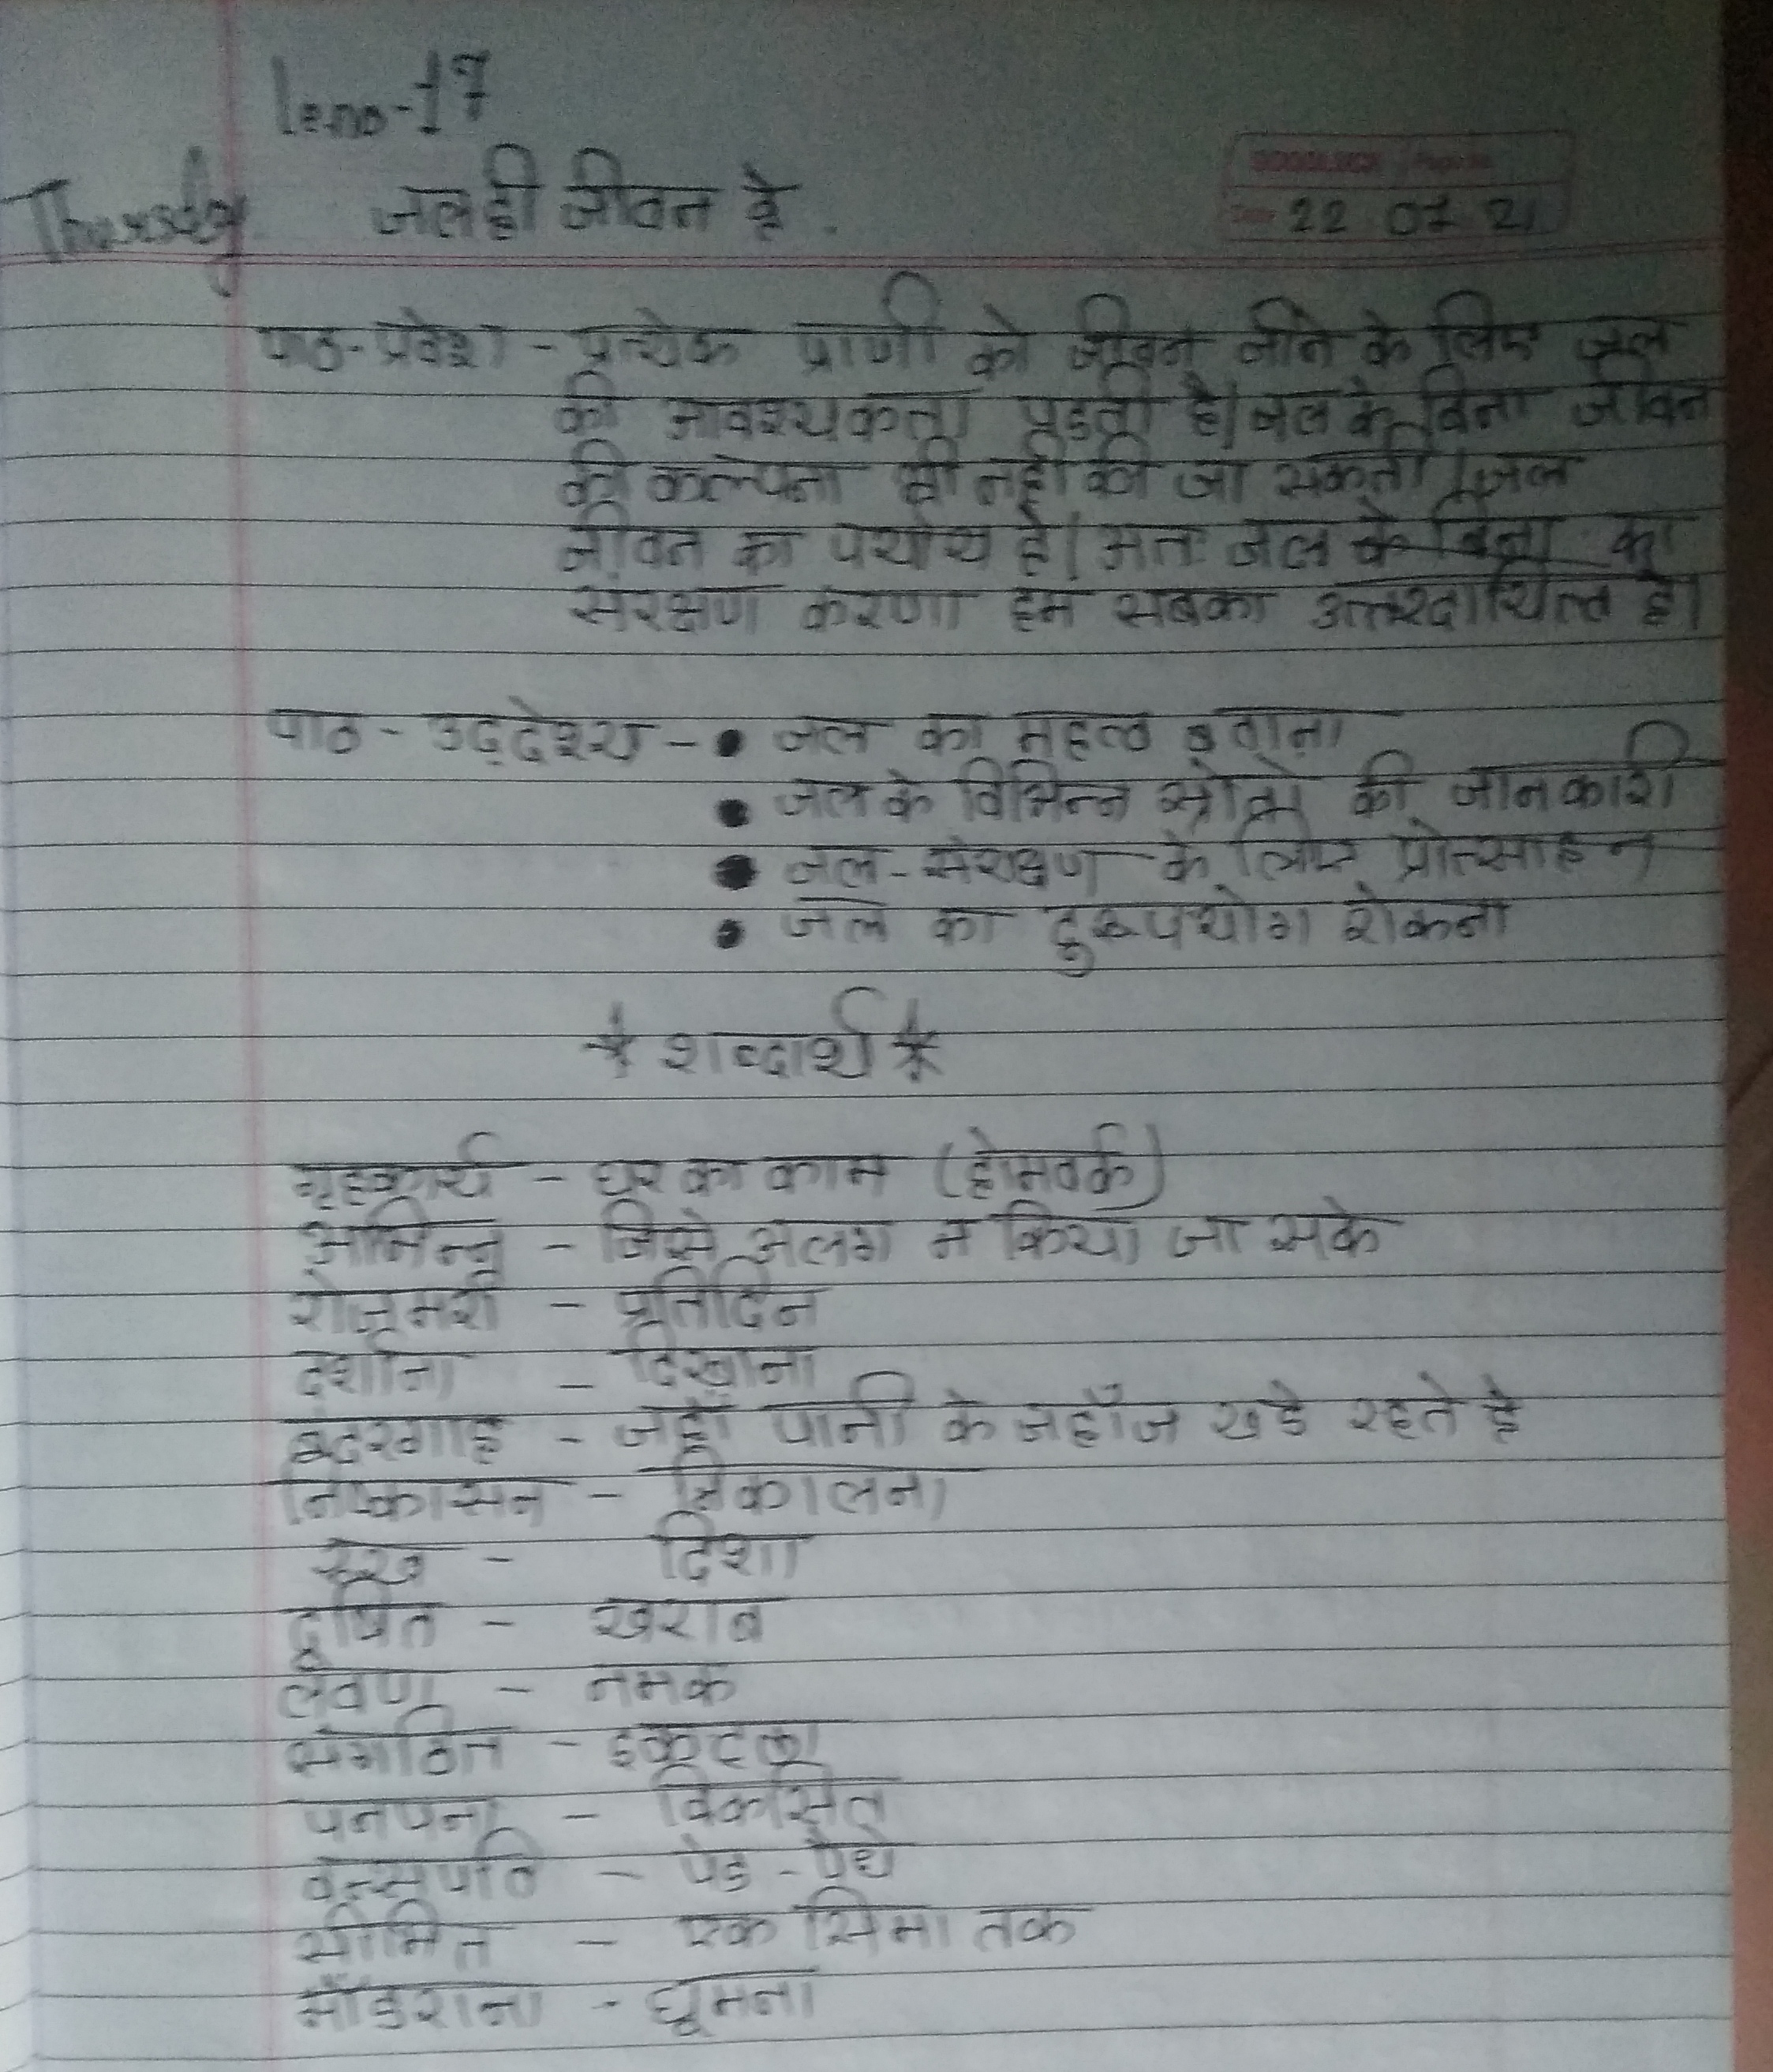 le.no-17
Thursday जल ही जीवन है.
22 07 21
पाठ-प्रवेश - प्रत्येक प्राणी को जीवन जीने के लिए जल
की आवश्यकता पड़ती है। जल के बिना जीवन
की कल्पना भी नही की जा सकती। जल
जीवन का पर्याय है। अतः जल के बिना का
संरक्षण करणा हम सबका उत्तरदायित्व है।
पाठ - उद्देश्य - • जल का महत्व बताना
• जल के विभिन्न स्रोतो की जानकारी
• जल-संरक्षण के लिए प्रोत्साहन
• जल का दुरूपयोग रोकना
* शब्दार्थ *
गृहकार्य - घर का काम (होमवर्क)
अभिन्न - जिसे अलग न किया जा सके
रोजमर्रा - प्रतिदिन
दर्शाना - दिखाना
बंदरगाह - जहाँ पानी के जहाँज खडे रहते है
निष्कासन - निकालना
रूख - दिशा
दूषित - खराब
लवण - नमक
संगठित - इकट्ठा
पनपना - विकसित
वन्सपति - पेड - पौधे
सीमित - एक सिमा तक
मँडराना - घूमना